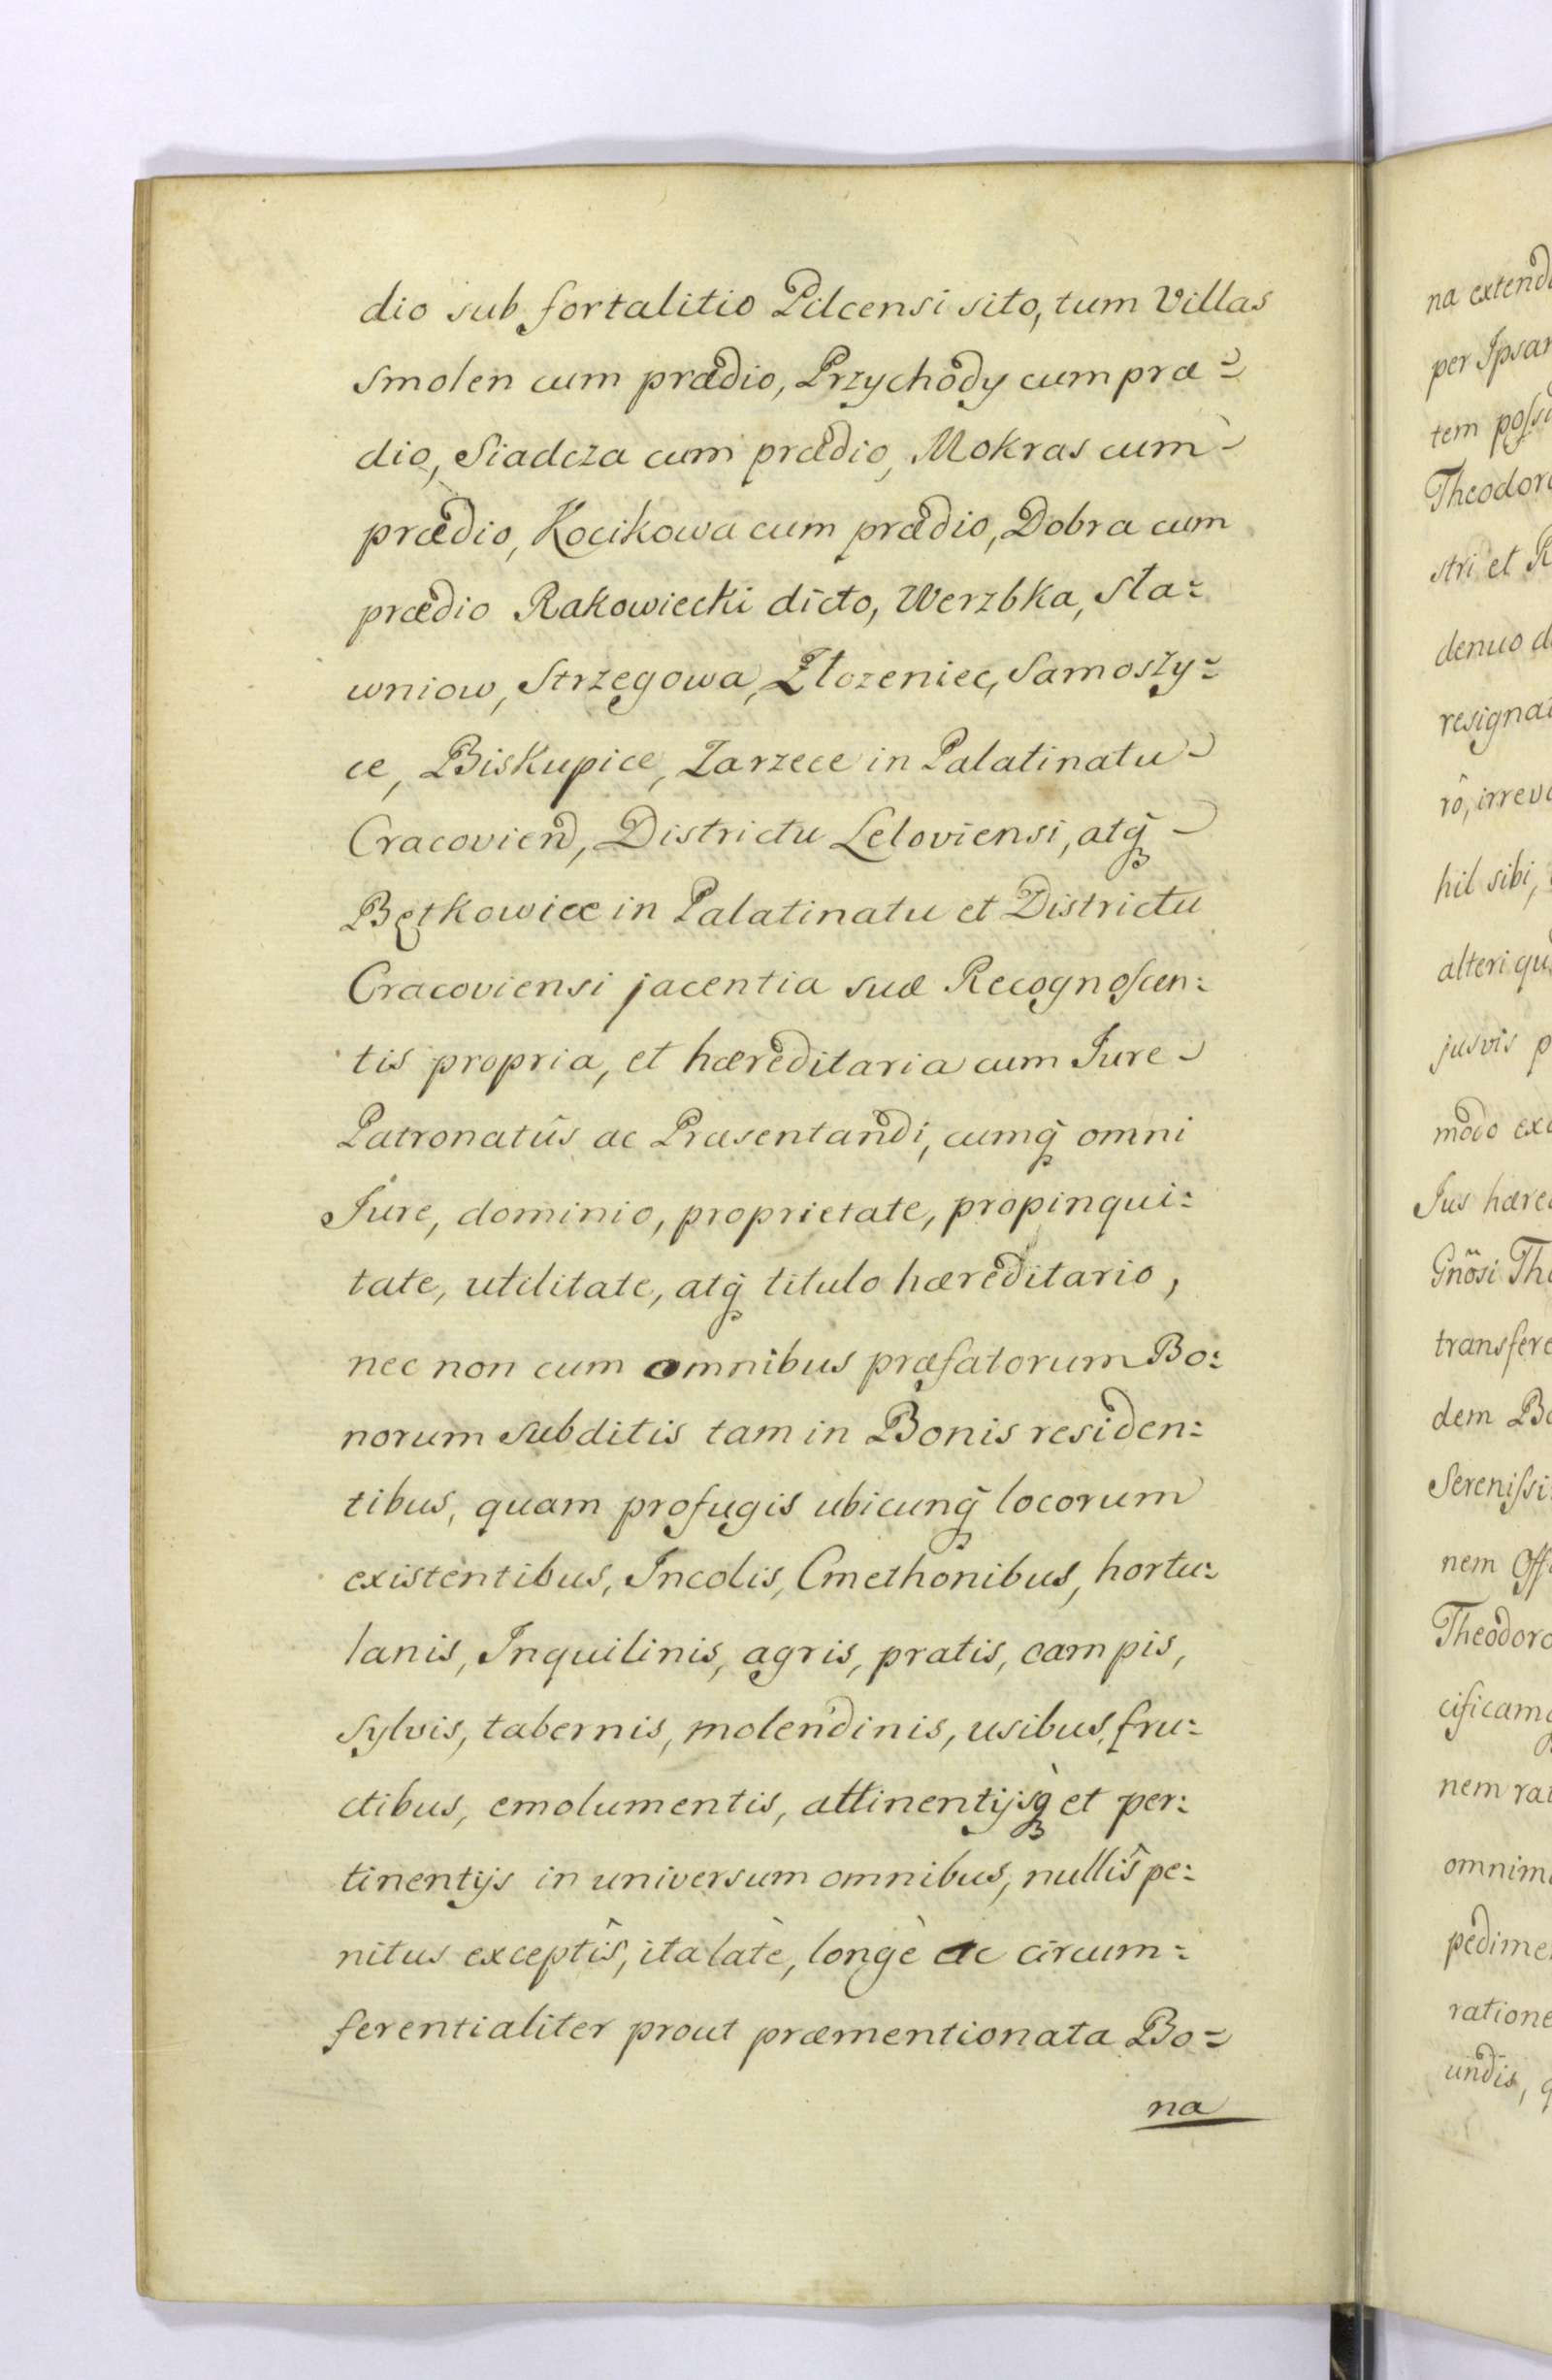 dio sub fortalitio Pilcensi sito, tum Villas
Smolen cum prædio, Przychôdy cum præ=
dio, Siadcza cum prædio, Mokras cum
prædio, Kocikowa cum prædio, Dobra cum
prædio Rakowiecki dicto, Werzbka, Sła=
wniow, Strzegowa, Złozeniec, Samoszy=
ce, Biskupice, Zarzece in Palatinatu
Cracovien, Districtu Leloviensi, atq̃
Bętkowice in Palatinatu et Districtu
Cracoviensi jacentia suæ Recognoscen=
tis propria, et hæreditaria cum Jure
Patronatûs ac Præsentandi, cumq̃ omni
Jure, dominio, proprietate, propinqui=
tate, utilitate, atq̃ titulo hæreditario,
nec non cum omnibus præfatorum Bo=
norum subditis tam in Bonis residen=
tibus, quam profugis ubicunq̃ locorum
existentibus, Incolis, Cmethonibus, hortu=
lanis, Inquilinis, agris, pratis, campis,
sylvis, tabernis, molendinis, usibus, fru=
ctibus, emolumentis, attinentijsq̀ et per=
tinentijs in universum omnibus, nullîs pe=
nitus exceptîs, ita latè, longè ac circum=
ferentialiter prout præmentionata Bo=
na
na extend
per Ipsa
tem poss
Theodor
stri et R
denuo d
resigna
rô, irrev
hil sibi,
alteri qu
jusvis p
modo ex
Jus hære
Gnõsi Th
transfer
dem Bo
Serenissi
nem Off
Theodoro
cificam
nem ra
omnim
pedime
ratione
undis, q